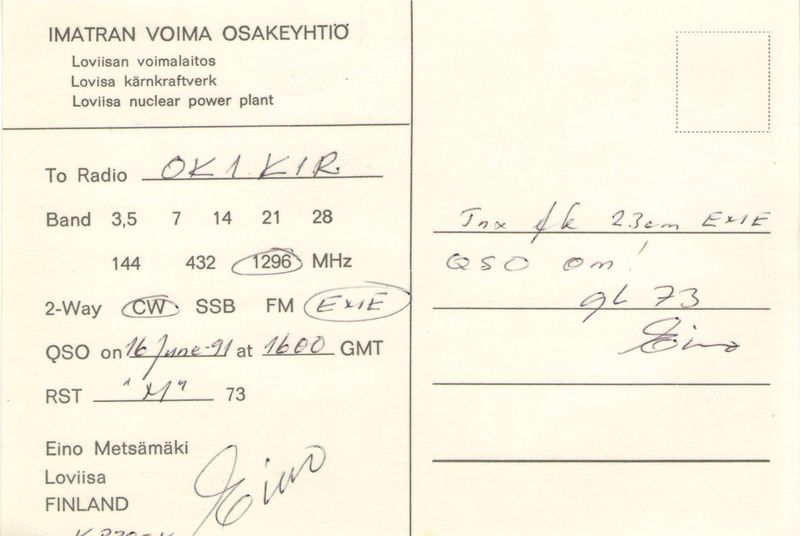 IMATRAN VOIMA OSAKEYHTIÖ
Loviisan voimalaitos
Lovisa kärnkraftverk
Loviisa nuclear power plant
To Radio OK1KIR
Band 3,5 7 14 21 28
144 432 1296 MHz
2-Way CW SSB FM EME
QSO on 16 June -91 at 1600 GMT
RST "M" 73
Eino Metsämäki
Loviisa
FINLAND
Eino
Tnx fr 23cm EME
QSO om!
gl 73
Eino